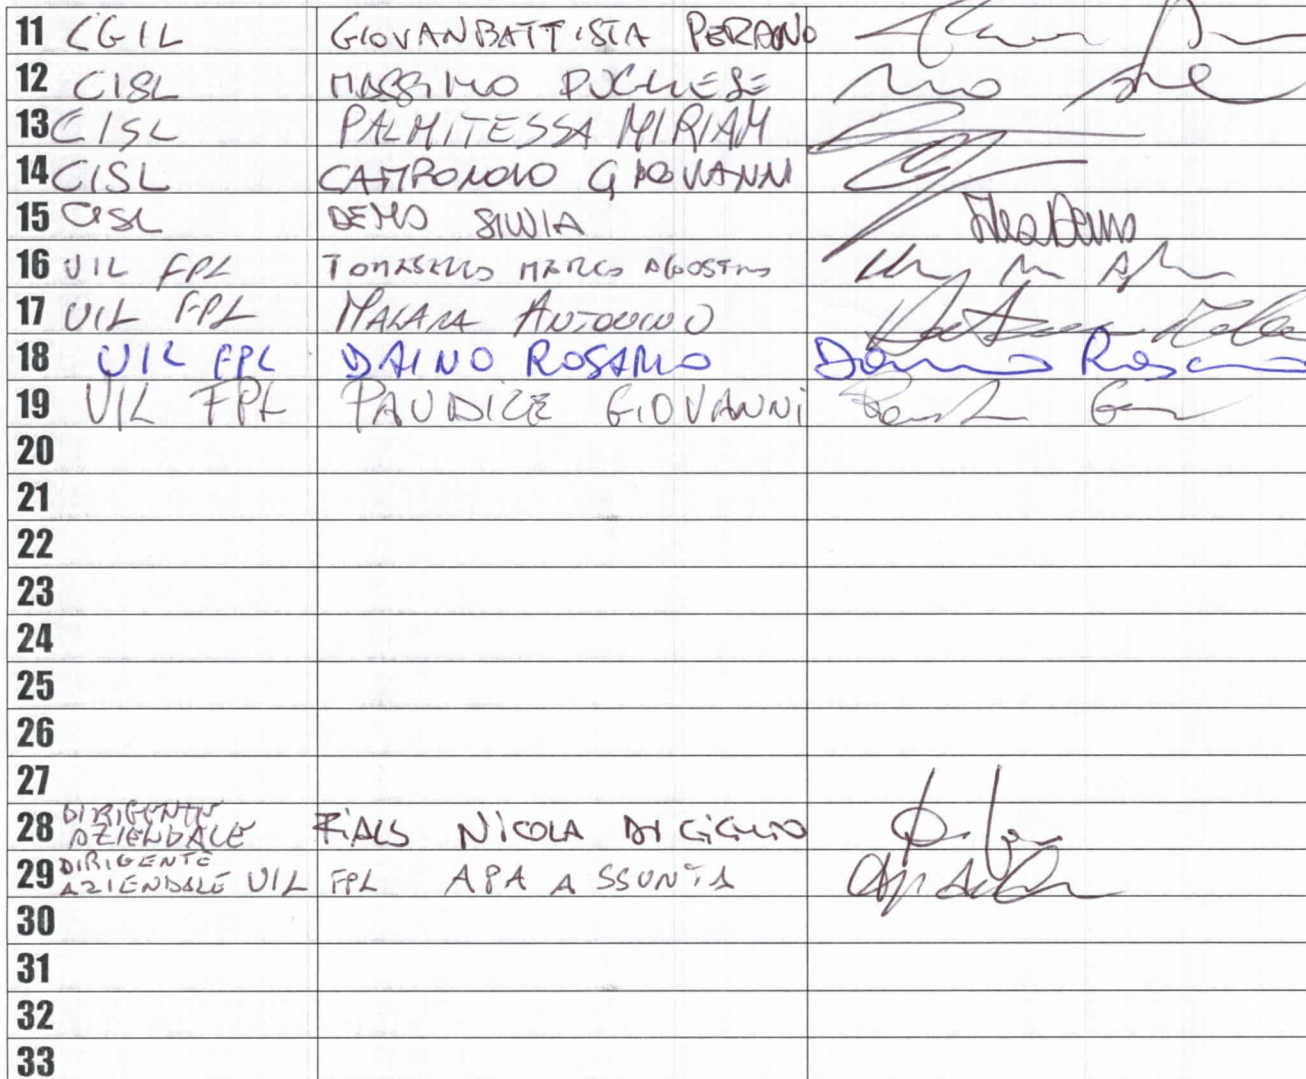 11 CGIL GIOVANBATTISTA PERANO
12 CISL MASSIMO PUGLIESE
13 CISL PALMITESSA MIRIAM
14 CISL CAMPOLOLO GIOVANNI
15 CISL DEMO SILVIA Silvia Demo
16 UIL FPL TOMASELLO MARCO AGOSTINO
17 UIL FPL MALARA ANTONINO
18 UIL FPL DAINO ROSARIO Daino Rosario
19 UIL FPL PAUDICE GIOVANNI
20
21
22
23
24
25
26
27
28 DIRIGENTE AZIENDALE FIALS NICOLA DI GIGLIO
29 DIRIGENTE AZIENDALE UIL FPL APA ASSUNTA
30
31
32
33